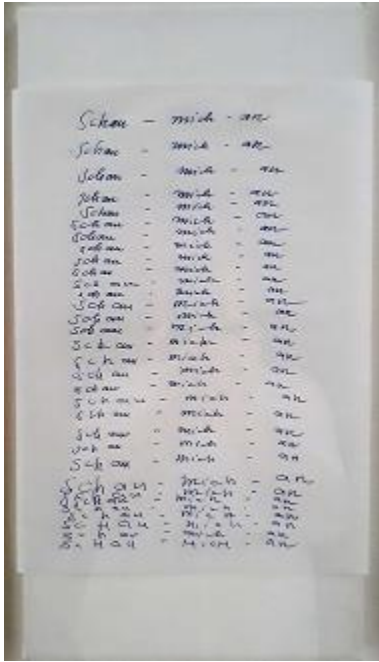 Schau - mich - an
Schau - mich - an
Schau - mich - an
Schau - mich - an
Schau - mich - an
Schau - mich - an
Schau - mich - an
Schau - mich - an
Schau - mich - an
Schau - mich - an
Schau - mich - an
Schau - mich - an
Schau - mich - an
Schau - mich - an
Schau - mich - an
Schau - mich - an
Schau - mich - an
Schau - mich - an
Schau - mich - an
Schau - mich - an
Schau - mich - an
Schau - mich - an
Schau - mich - an
Schau - mich - an
Schau - mich - an
mich - an
mich - an
mich - an
mich - an
mich - an